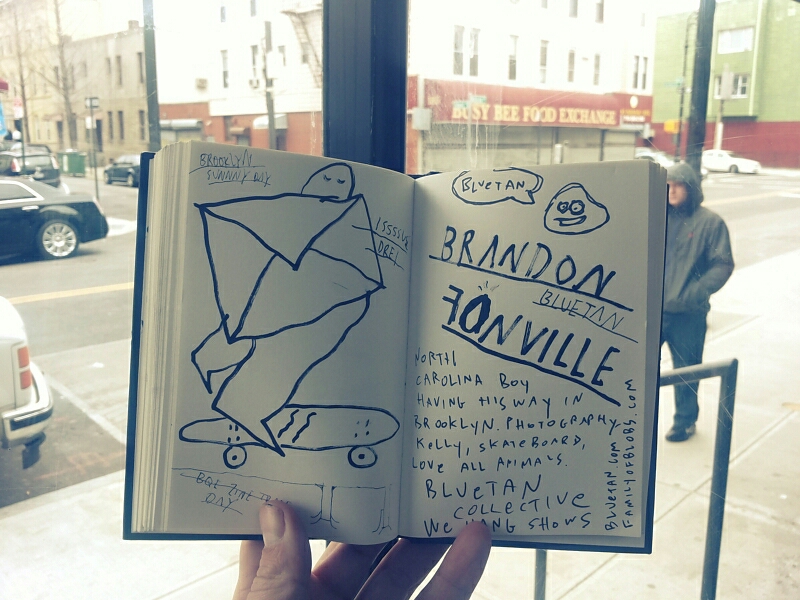 BUSY BEE FOOD EXCHANGE
BROOKLYN
SUNNNY DAY
ISSSSUE
DREI
DAY
BLUETAN
BRANDON
BLUETAN
FONVILLE
NORTH
CAROLINA BOY
HAVING HIS WAY IN
BROOKLYN. PHOTOGRAPHY,
KELLY, SKATEBOARD,
LOVE ALL ANIMALS.
BLUETAN
COLLECTIVE
WE HANG SHOWS
BLUETAN.COM
FAMILYOFBLOBS.COM